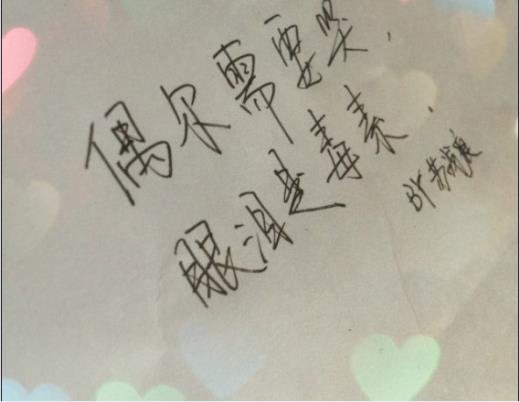 偶尔需要哭.
眼泪是毒素.
BY